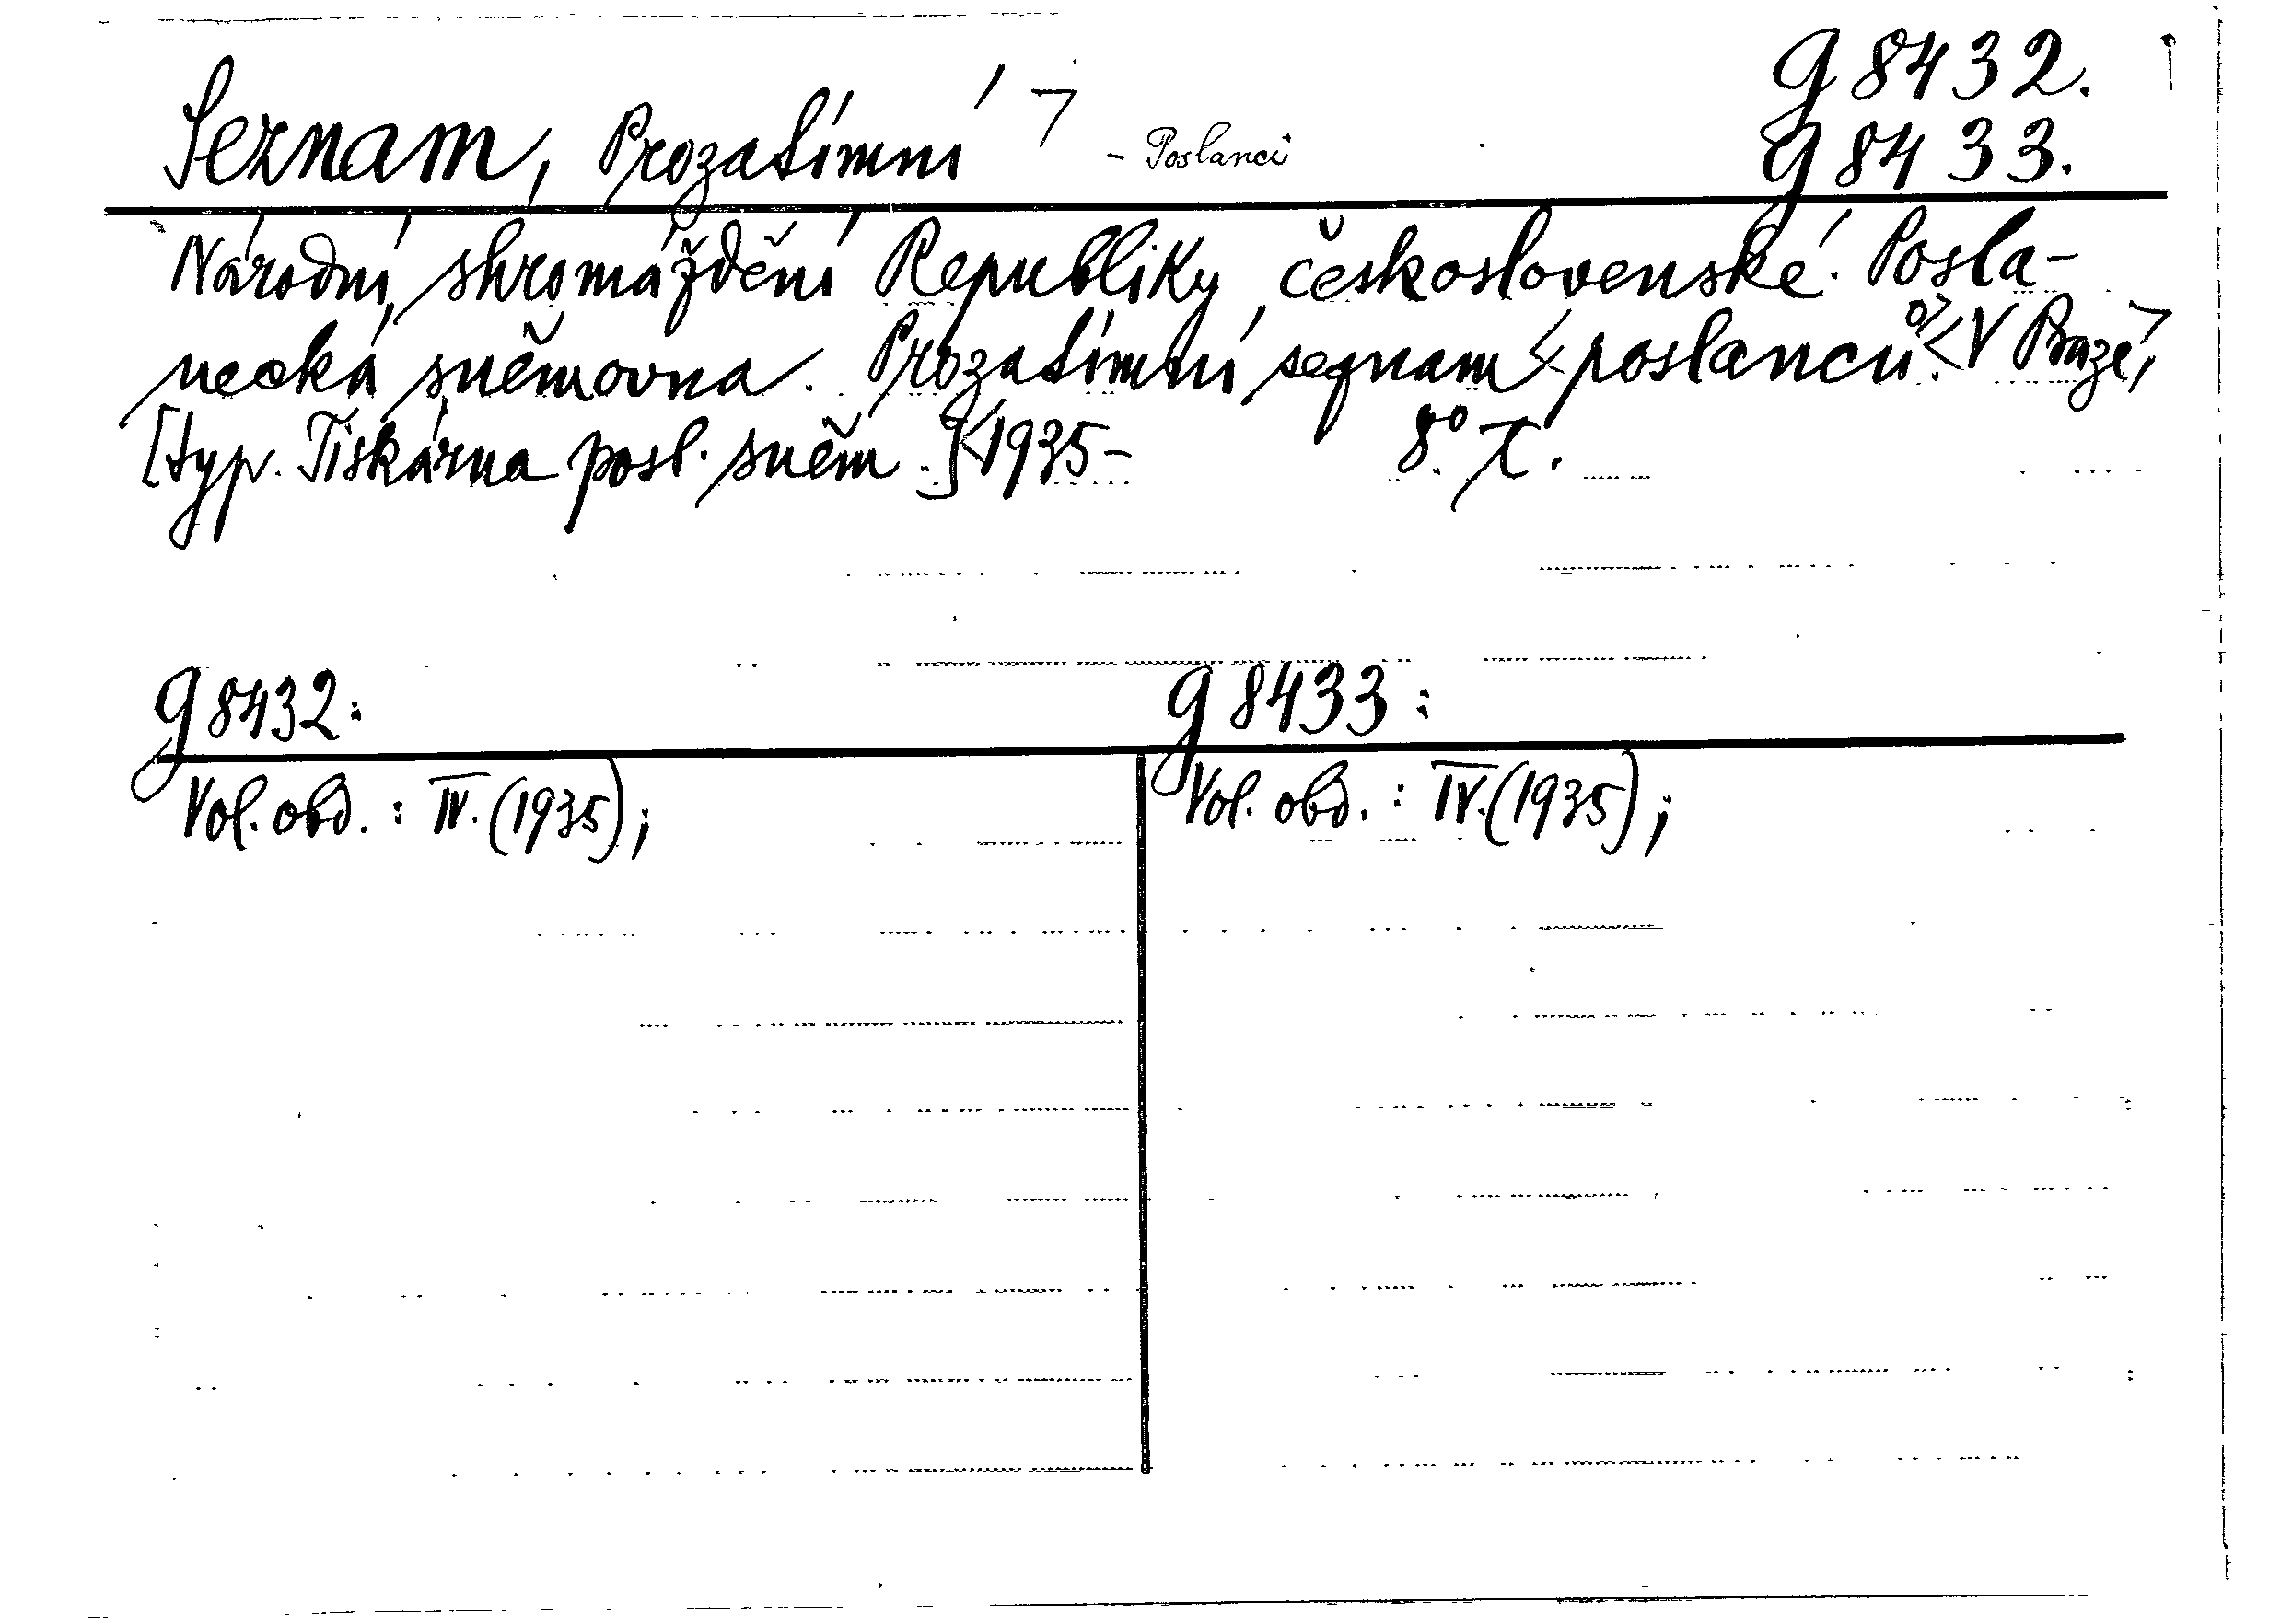 g 8432.
Seznam, Prozatímní - Poslanci
g 8433.
Národní shromáždění Republiky československé. Posla-
necká sněmovna. Prozatímní seznam poslanců. V Praze,
[typ. Tiskárna posl. sněm.] 1935- 8°.
g 8432: g 8433:
Vol. obd.: IV. (1935); Vol. obd.: IV. (1935);